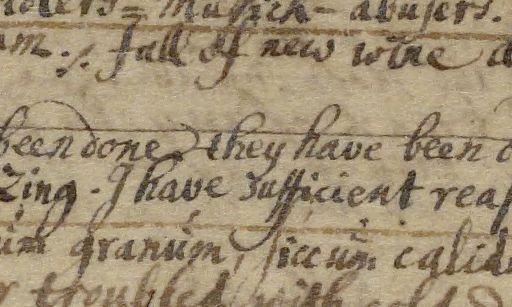 Musick - abusers.
full of new wine
been done, they have been
zing. I have sufficient reas
um granum, siccum e glid
troubled with